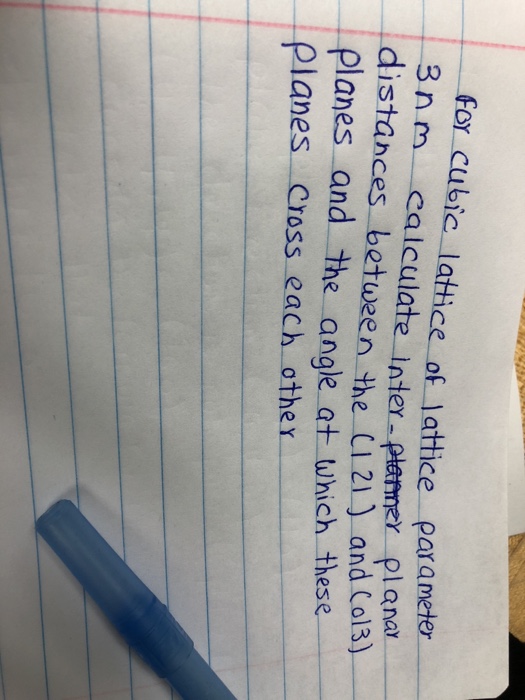 for cubic lattice of lattice parameter
3nm calculate inter-planar
distances between the (121) and (013)
planes and the angle at which these
planes cross each other